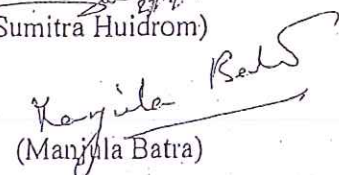 (Sumitra Huidrom)
Manjula Batra
(Manjula Batra)